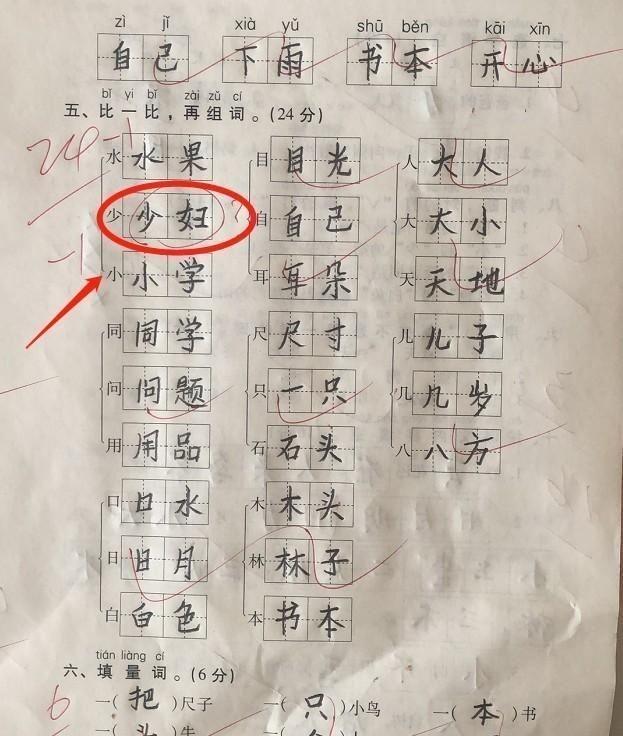 zì jǐ xià yǔ shū běn kāi xīn
自己 下雨 书本 开心
bǐ yi bǐ zài zǔ cí
五、比一比,再组词。(24分)
24-1
水 水果 目 目光 人 大人
少 少妇 ? 自 自己 大 大小
-1
小 小学 耳 耳朵 天 天地
同 同学 尺 尺寸 儿 儿子
问 问题 只 一只 几 几岁
用 用品 石 石头 八 八方
口 口水 木 木头
日 日月 林 林子
白 白色 本 书本
tián liàng cí
六、填量词。(6分)
6
一(把)尺子 一(只)小鸟 一(本)书
一(头)牛